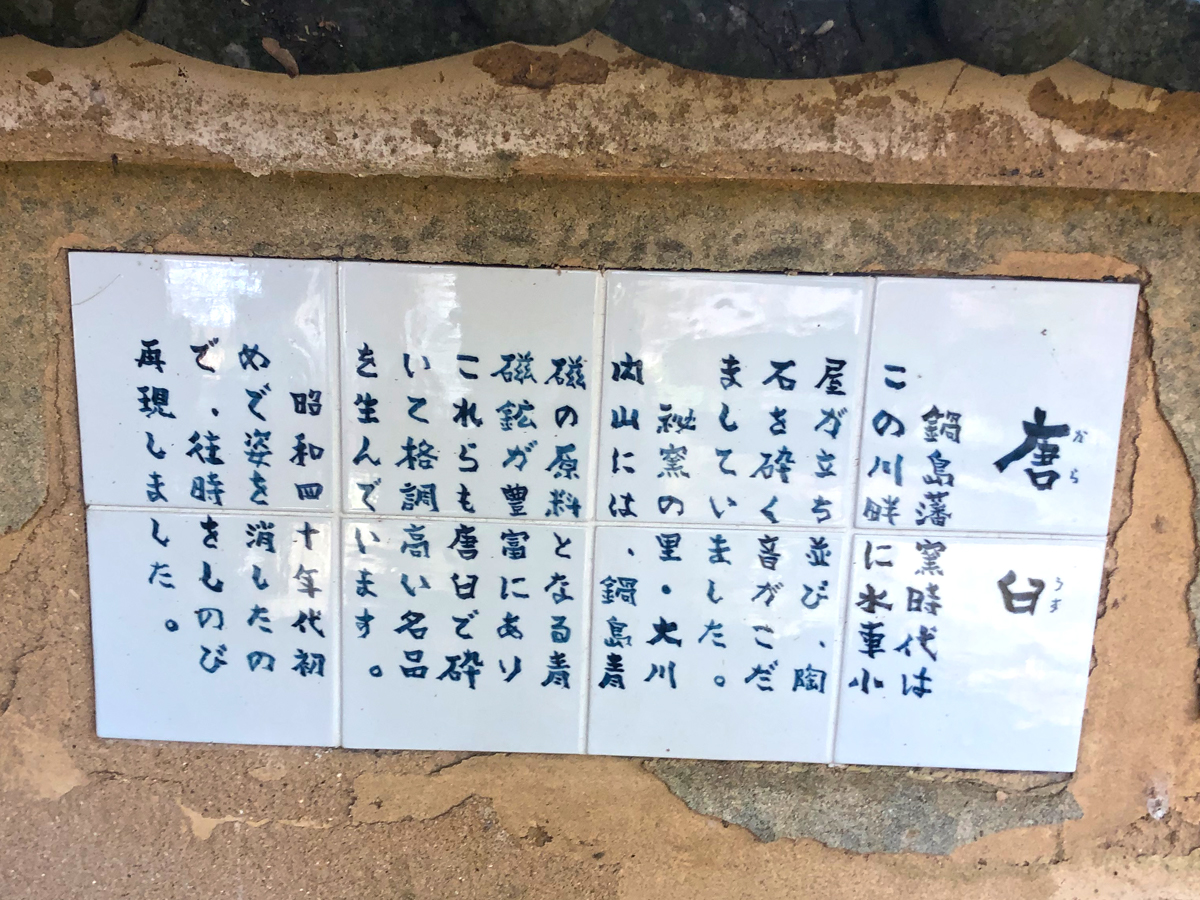 唐臼
からうす
鍋島藩窯時代は
この川畔に水車小
屋が立ち並び、陶
石を砕く音がこだ
ましていました。
秘窯の里・大川
内山には、鍋島青
磁の原料となる青
磁鉱が豊富にあり
これらも唐臼で砕
いて格調高い名品
を生んでいます。
昭和四十年代初
めで姿を消したの
で、往時をしのび
再現しました。